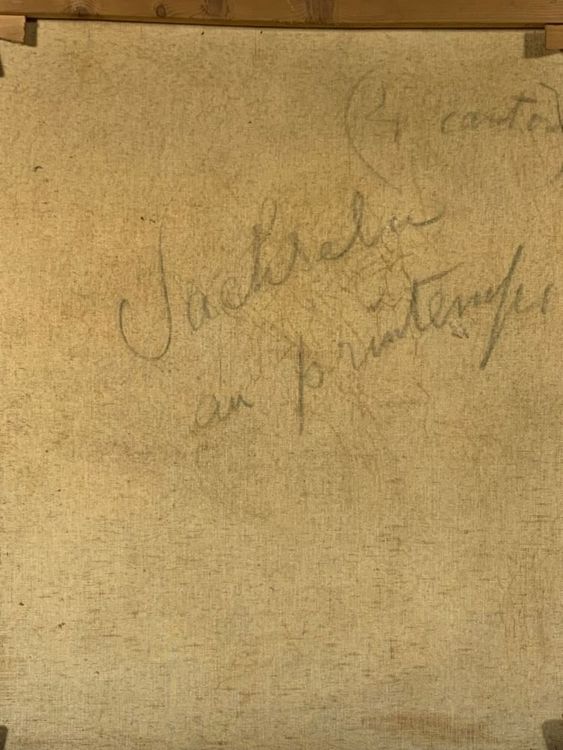 (4 canto
Sachseln
au printemps